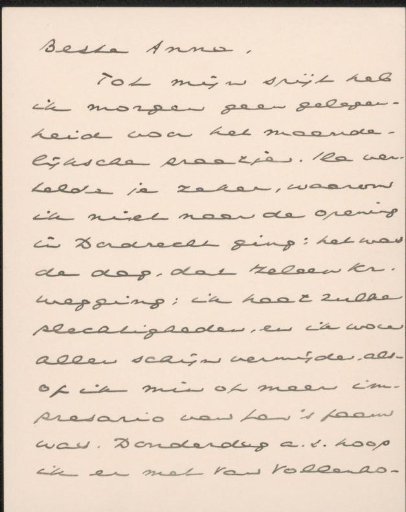 Beste Anna,
Tot mijn spijt heb
ik morgen geen gelegen-
heid voor het maande-
lijksche praatje. Ik ver-
telde je zeker, waarom
ik niet naar de opening
in Dordrecht ging: het was
de dag, dat Heleen Kr.
wegging; ik haat zulke
plechtigheden, en ik wou
allen schijn vermijden, als-
of ik min of meer im-
presario van Jan's faam
was. Donderdag a.s. hoop
ik er met Van Vollenho-